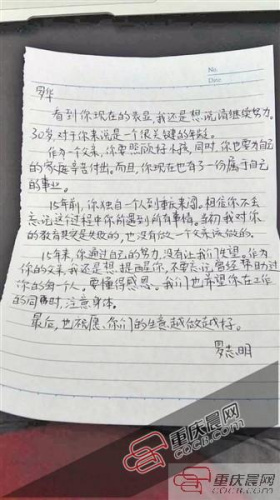 No.
Date
罗华
看到你现在的表显,我还是想说请继续努力。
30岁对于你来说是一个很关键的年龄。
作为一个父亲,你要照顾好小孩,同时,你也要为自己
的家庭辛苦付出。而且,你现在也有了一份属于自己
的事业。
15年前,你独自一个人到重庆来闯。相信你不会
忘记这个过程中你所遇到所有事情。当初我对你
的教育是失败的,也没有做一个父亲该做的。
15年来,你通过自己的努力,没有让我们失望。作为
你的父亲,我还是想提醒你,不要忘记曾经帮助过
你的每一个人,要懂得感恩。我们也希望你在工作
的同时,注意身体。
最后,也祝愿你们的生意越做越好。
罗志明
重庆晨网
重庆晨网
CQCB.COM